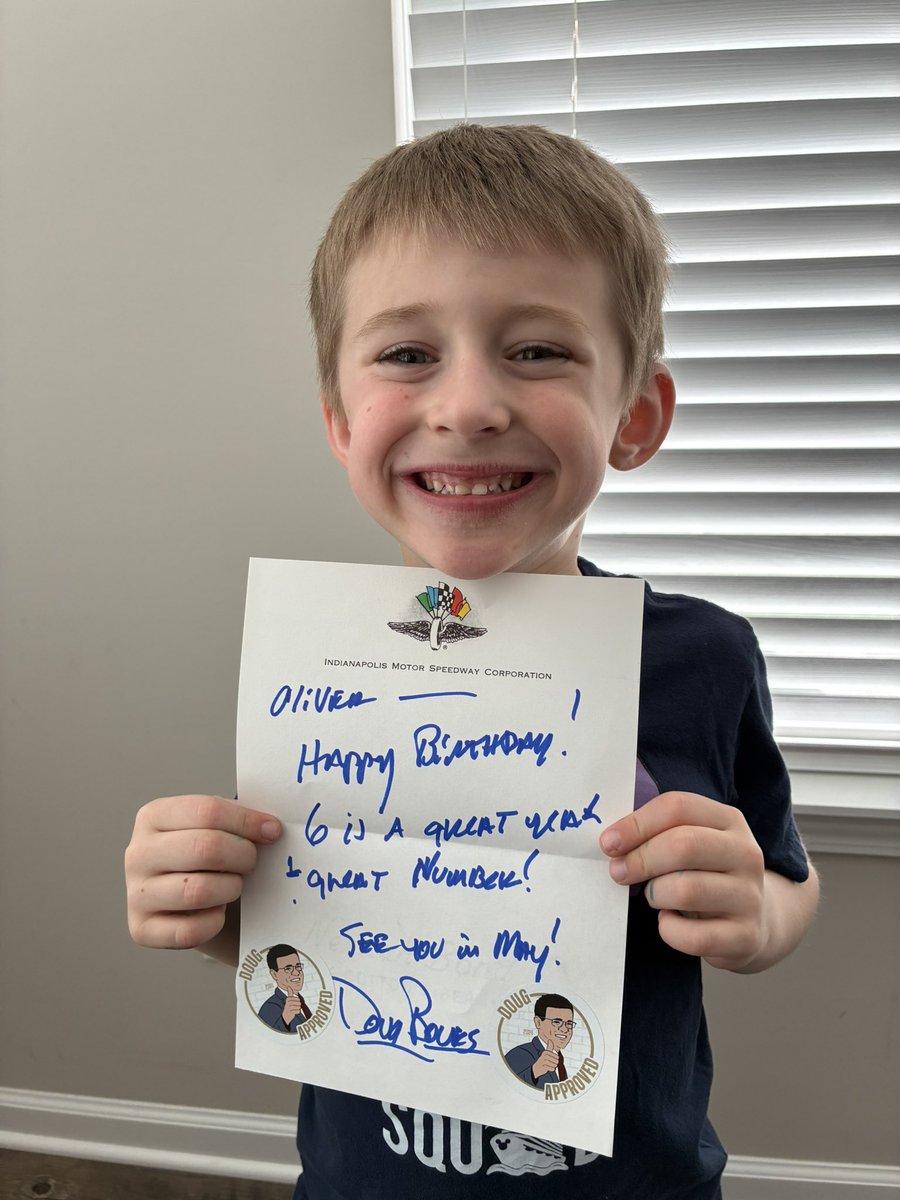 Indianapolis Motor Speedway Corporation
Oliver —
Happy Birthday!
6 is a great year
& great Number!
See you in May!
Doug Boles
DOUG APPROVED
DOUG APPROVED
SQU